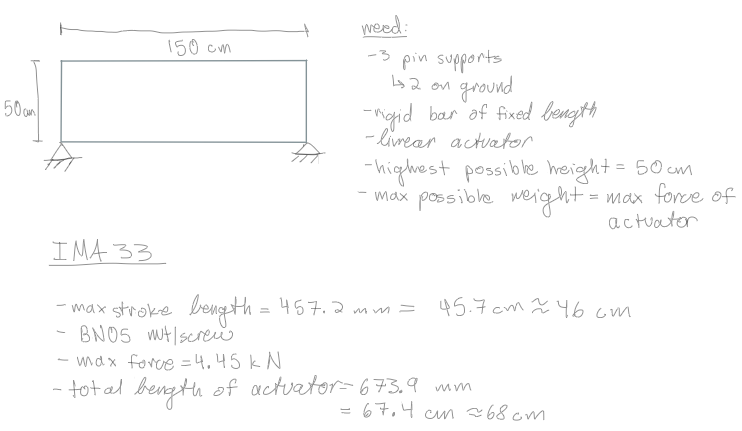 150 cm
50cm
need:
-3 pin supports
↳2 on ground
-rigid bar of fixed length
-linear actuator
-highest possible height = 50 cm
- max possible weight = max force of
actuator
IMA 33
- max stroke length = 457.2 mm = 45.7 cm ≈ 46 cm
- BN05 nut/screw
- max force = 4.45 kN
- total length of actuator = 673.9 mm
= 67.4 cm ≈ 68 cm